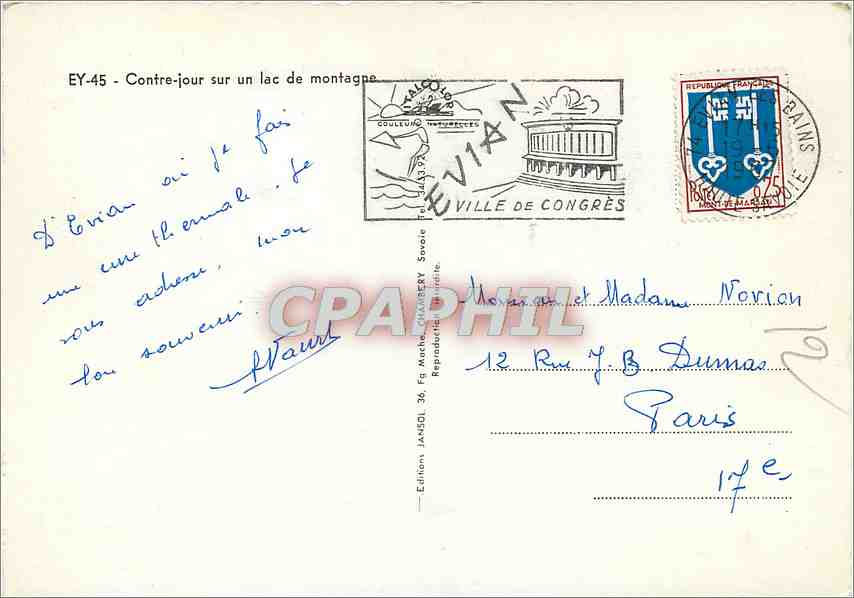 EY-45 - Contre-jour sur un lac de montagne
D'Evian où je fais
une cure thermale. Je
vous adresse, mon
bon souvenir.
ITALCOLOR
COULEURS NATURELLES
EVIAN
VILLE DE CONGRÈS
REPUBLIQUE FRANÇAISE
POSTES 0,25
MONT-DE-MARSAN
74 EVIAN-LES-BAINS
HAUTE-SAVOIE
Editions JANSOL, 36, Fg Mache, CHAMBERY Savoie Tel. 34-53-92
Reproduction interdite.
CPAPHIL
Monsieur et Madame Novion
12 Rue J. B. Dumas
Paris
17e